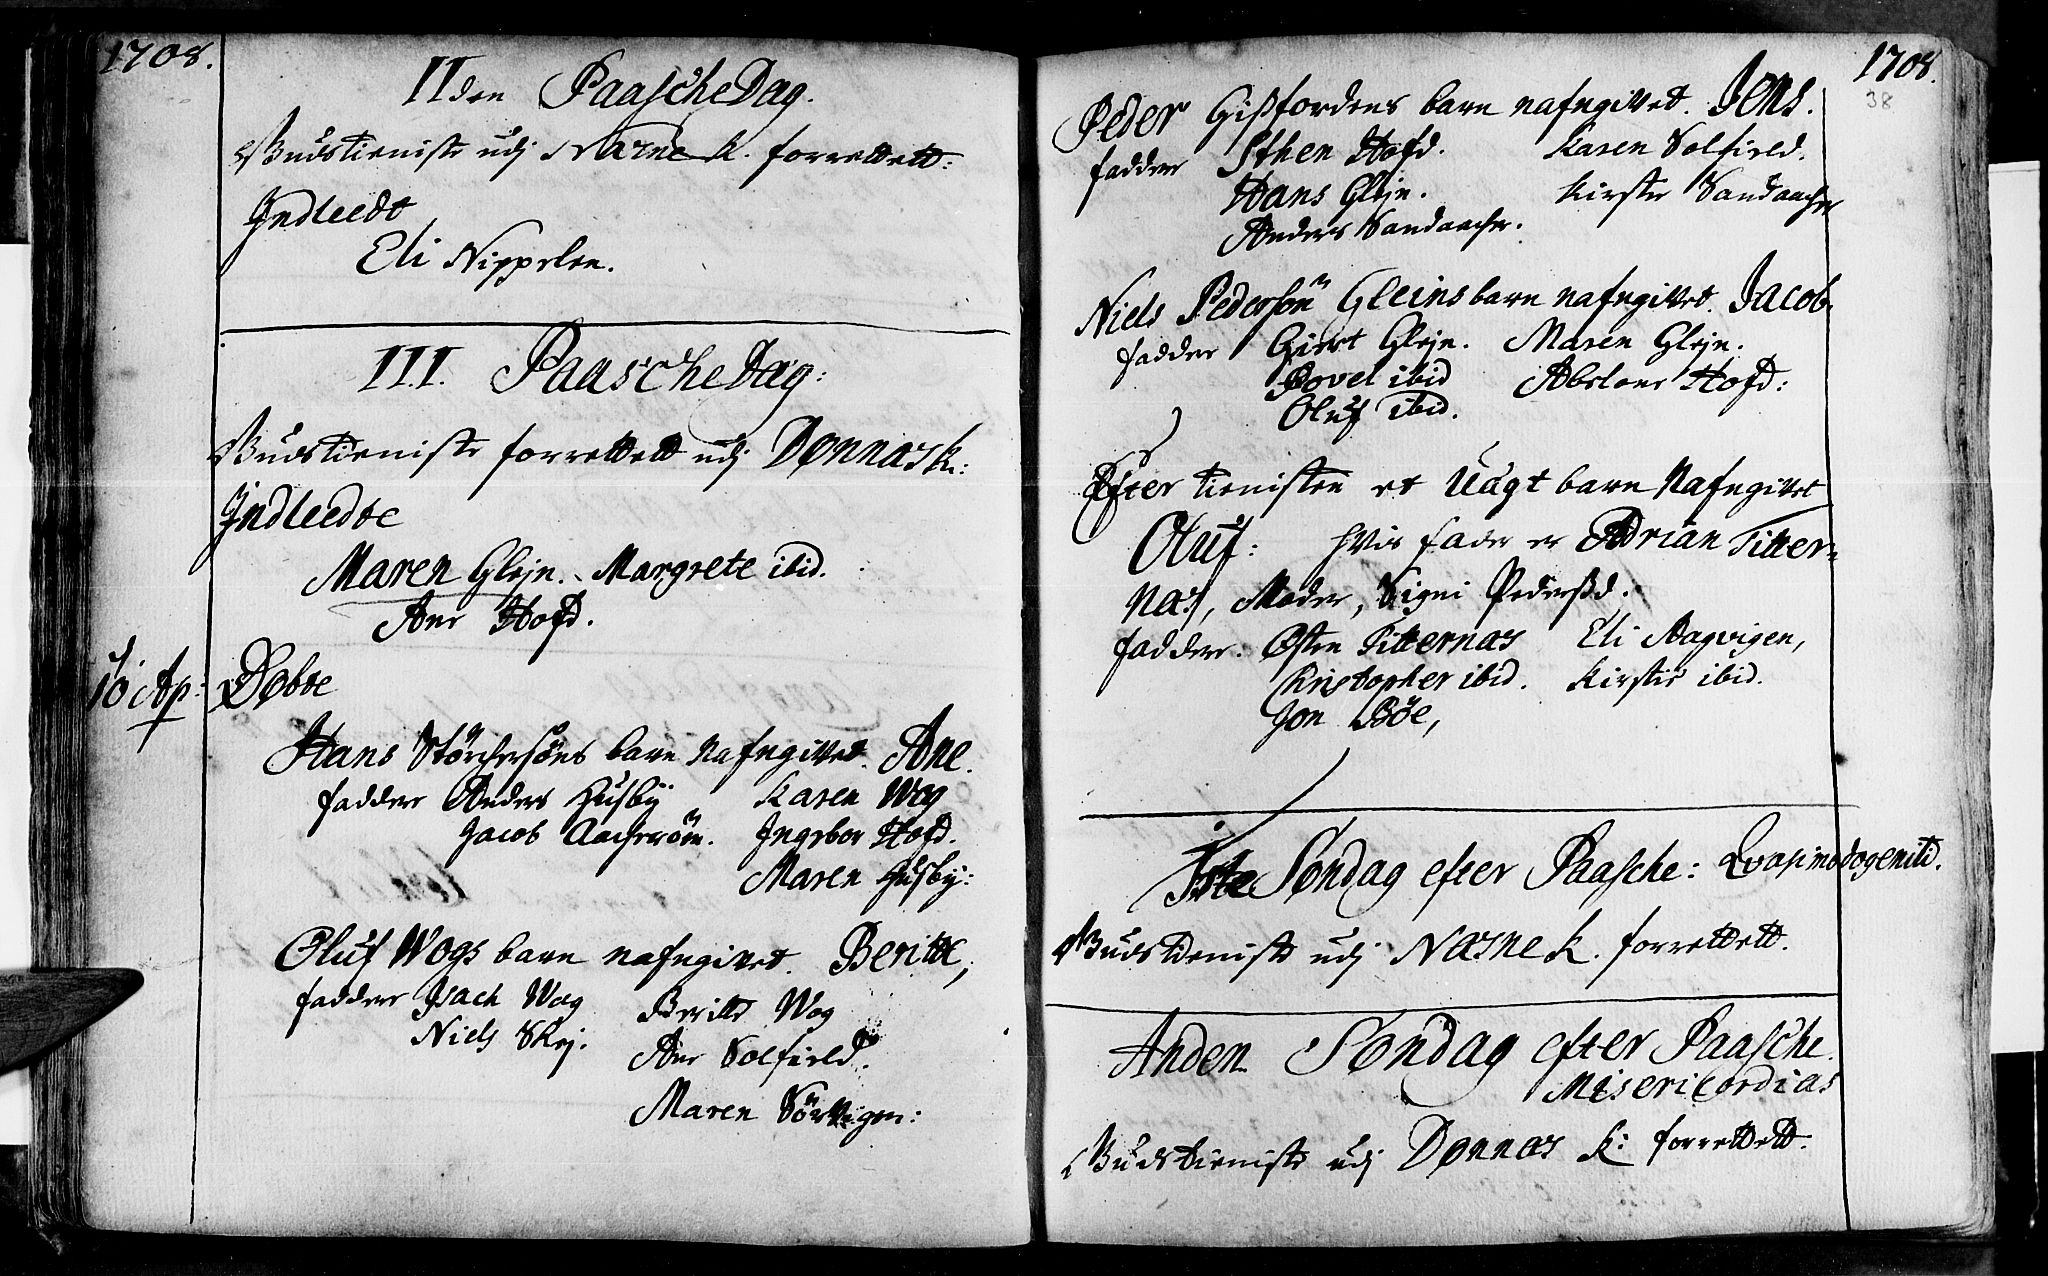 1708.
IIden PaascheDag.
Gudstieniste udj Næsne K. forrettett:
Indleedt
Eli Nippelen.
III. PaascheDag:
Gudstieniste forrettett udj Dønnæs K:
Indleedte
Maren Glejn. Margrete ibid.
Ane Hofd.
10 Ap: Døbte
Hans Størchersöns barn Nafngivet. Ane.
faddere Anders Husby Karen Wog
Jacob Aachervig. Ingebor Hofd.
Maren Husby:
Oluf Wogs barn nafngivet. Beritte,
faddere Isach Wog Beritte Wog
Niels Skej. Ane Solfield.
Maren Sörvigen:
1708.
38
Peder Gißfordens barn nafngivet. Jens.
faddere Sthen Hofd. Karen Solfield.
Hans Glejn. Kirste Sandaacher
Anders Sandaacher.
Niels Pedersön Gleins barn nafngivet. Jacob.
faddere Giert Glejn. Maren Glejn.
Povel ibid Abelone Hofd:
Oluf ibid.
Efter tienisten et Uægt barn Nafngivet
Oluf: hvis fader er Adrian Titter-
næs, Moder, Signi Pedersd.
faddere: Østen Titternæs Eli Aagvigen,
Christopher ibid. Kirstie ibid.
Jon Bøe,
Iste Søndag efter Paasche: Qvasimodogeniti.
Gudstieniste udj Næsne K. forrettett.
Anden Søndag efter Paasche.
Misericordias
Gudstieniste udj Dønnæs K: forrettett.